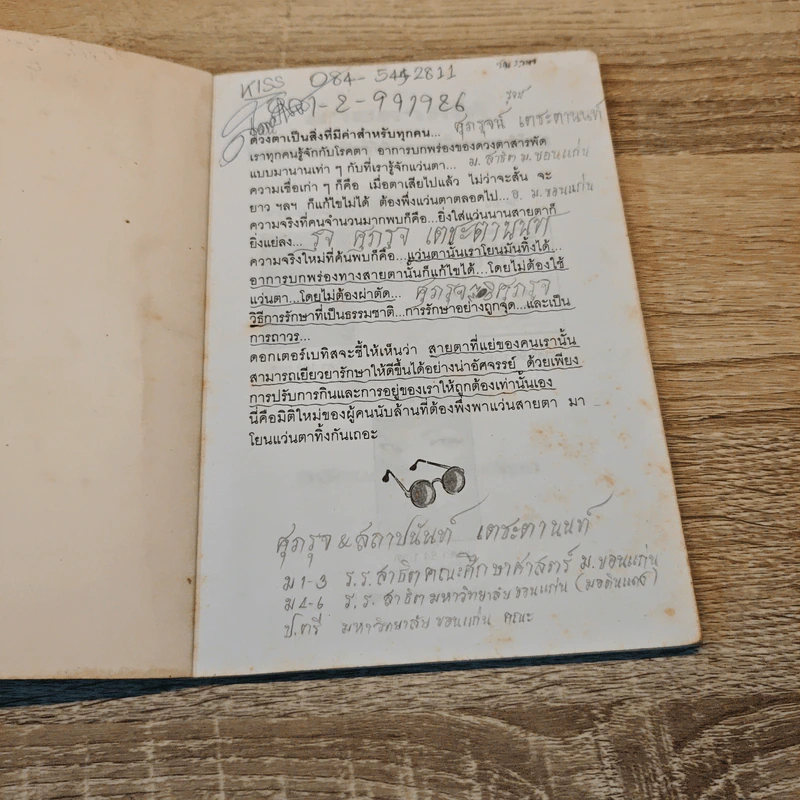 KISS 084-5492811
1-2-991926
ดวงตาเป็นสิ่งที่มีค่าสำหรับทุกคน... ศุภรุจน์ เตชะตานนท์
เราทุกคนรู้จักกับโรคตา อาการบกพร่องของดวงตาสารพัด
แบบมานานเท่า ๆ กับที่เรารู้จักแว่นตา... ม. สาธิต ม. ขอนแก่น
ความเชื่อเก่า ๆ ก็คือ เมื่อตาเสียไปแล้ว ไม่ว่าจะสั้น จะ
ยาว ฯลฯ ก็แก้ไขไม่ได้ ต้องพึ่งแว่นตาตลอดไป... ม. ขอนแก่น
ความจริงที่คนจำนวนมากพบก็คือ...ยิ่งใส่แว่นนานสายตาก็
ยิ่งแย่ลง... รุจ ศุภรุจ เตชะตานนท์
ความจริงใหม่ที่ค้นพบก็คือ...แว่นตานั้นเราโยนมันทิ้งได้...
อาการบกพร่องทางสายตานั้นก็แก้ไขได้...โดยไม่ต้องใช้
แว่นตา...โดยไม่ต้องผ่าตัด... ศุภรุจ ศุภรุจ
วิธีการรักษาที่เป็นธรรมชาติ...การรักษาอย่างถูกจุด...และเป็น
การถาวร...
ดอกเตอร์เบทิสจะชี้ให้เห็นว่า สายตาที่แย่ของคนเรานั้น
สามารถเยียวยารักษาให้ดีขึ้นได้อย่างน่าอัศจรรย์ ด้วยเพียง
การปรับการกินและการอยู่ของเราให้ถูกต้องเท่านั้นเอง
นี่คือมิติใหม่ของผู้คนนับล้านที่ต้องพึ่งพาแว่นสายตา มา
โยนแว่นตาทิ้งกันเถอะ
ศุภรุจ & สถาปนันท์ เตชะตานนท์
ม 1-3 ร.ร. สาธิตคณะศึกษาศาสตร์ ม. ขอนแก่น
ม 4-6 ร.ร. สาธิตมหาวิทยาลัยขอนแก่น (มอดินแดง)
ป.ตรี มหาวิทยาลัยขอนแก่น คณะ